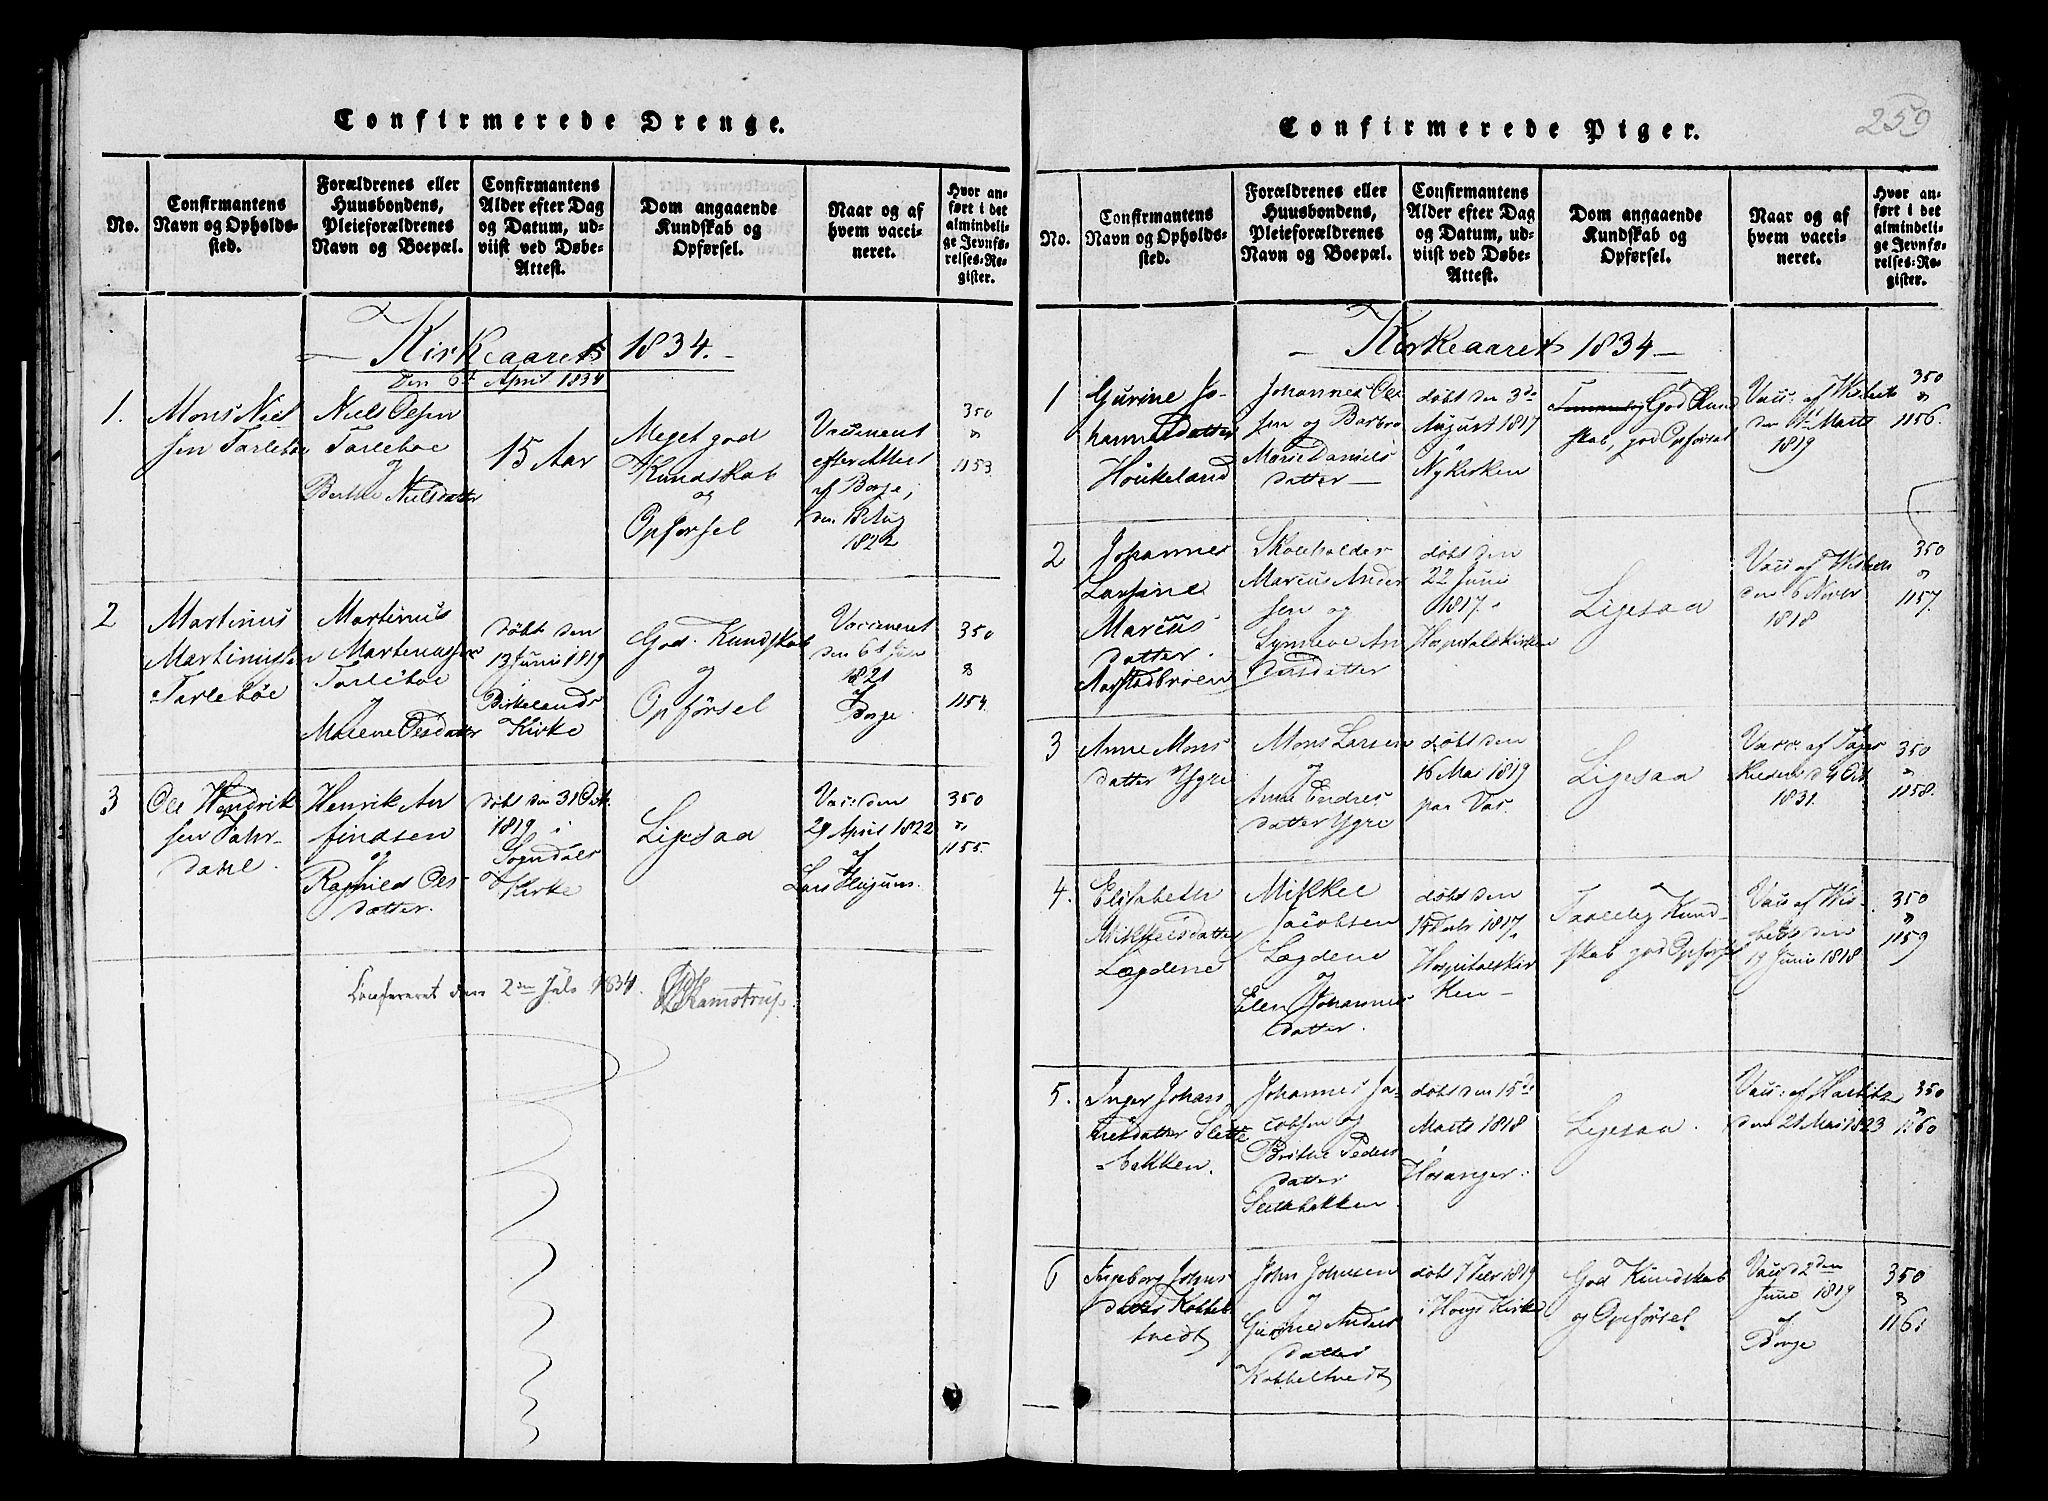 Confirmerede Drenge.
No.
Confirmantens
Navn og Opholds-
sted.
Forældrenes eller
Huusbondens,
Pleieforældrenes
Navn og Boepæl.
Confirmantens
Alder efter Dag
og Datum, ud-
viist ved Døbe-
Attest.
Dom angaaende
Kundskab og
Opførsel.
Naar og af
hvem vacci-
neret.
Hvor an-
ført i det
almindeli-
ge Jevnfø-
relses-Re-
gister.
Kirkeaaret 1834.
Den 6te April 1834
1.
Mons Niel
sen Tarleboe
Niels Olsen
Tarleboe
og
Berthe Nielsdatter
15 Aar
Meget god
Kundskab
og
Opførsel
Vaccineret
efter Attest
af Borge,
den Aug
1822
350
"
1153
2
Martinus
Martinussen
Tarleböe
Martinus
Martenussen
Tarleböe
og
Malene Olsdatter
döbt den
13 Juni 1819
i
Birkelands
Kirke
God Kundskab
og
Opförsel
Vaccineret
den 6
1821
af
Borge
350
&
1154.
3
Ole Hendrik
sen Fahr-
dahl.
Henrik An
findsen
og
Ragnild Ols
datter.
döbt den 31 Octb.
1819 i
Sogndals
Kirke
Ligesaa
Vacc: den
29 April 1822
af
Lars Husum.
350
"
1155.
Confereret den 2den Juli 1834. Kamstrup.
Confirmerede Piger.
259
No.
Confirmantens
Navn og Opholds-
sted.
Forældrenes eller
Huusbondens,
Pleieforældrenes
Navn og Boepæl.
Confirmantens
Alder efter Dag
og Datum, ud-
viist ved Døbe-
Attest.
Dom angaaende
Kundskab og
Opførsel.
Naar og af
hvem vacci-
neret.
Hvor an-
ført i det
almindeli-
ge Jevnfø-
relses-Re-
gister.
Kirkeaaret 1834
1
Gurine Jo-
hannesdatter
Houkeland
Johannes Ol
sen og Barbro
Marie Daniels
datter
döbt den 3de
August 1817
Nykirken
God Kund
skab, god Opförsel
Vacc. af Wisbech
den Marts
1819
350
"
1156.
2
Johannes
Larsine
Marcus
datter.
Aarstadbroen
Skoleholder
Marcus Ander
sen og
Synneve An
dersdatter
döbt den
22 Juni
1817.
Hospitalskirken
Ligesaa
Vacc af Wisbech
den 6 Novbr
1818
350
"
1157.
3
Anne Mons
datter Ygre
Mons Larsen
og
Anne Endres
datter Ygre
döbt den
16 Mai 1819
paa Vos.
Ligesaa
Vacc. af
d 4 Oct
1831.
350
"
1158.
4.
Elisabeth
Mikkelsdatter
Lægdene
Mikkel
Jacobsen
Lægdene
og
Elen Johannes
datter.
döbt den
1817.
Hospitalskir
ken
Taalelig Kund-
skab god Opförsel
Vacc af Wis-
bech den
19 Juni 1818
350
"
1159
5.
Inger Johan
nesdatter Slette
bakken.
Johannes Ja-
cobsen og
Brithe Peders
datter
Slettebakken
döbt den 15de
Marts 1818
i
Hosanger.
Ligesaa.
Vacc: af
den 21 Mai 1823
350
"
1160
6
Ingeborg Johns
datter Kobbel
tvedt
John Johnsen
og
Gurine Anders
datter
Kobbeltvedt
döbt 7 Febr 1819
i Hougs Kirke
God Kundskab
og Opførsel
Vacc d 2den
Juni 1819
af
Borge
350
"
1161